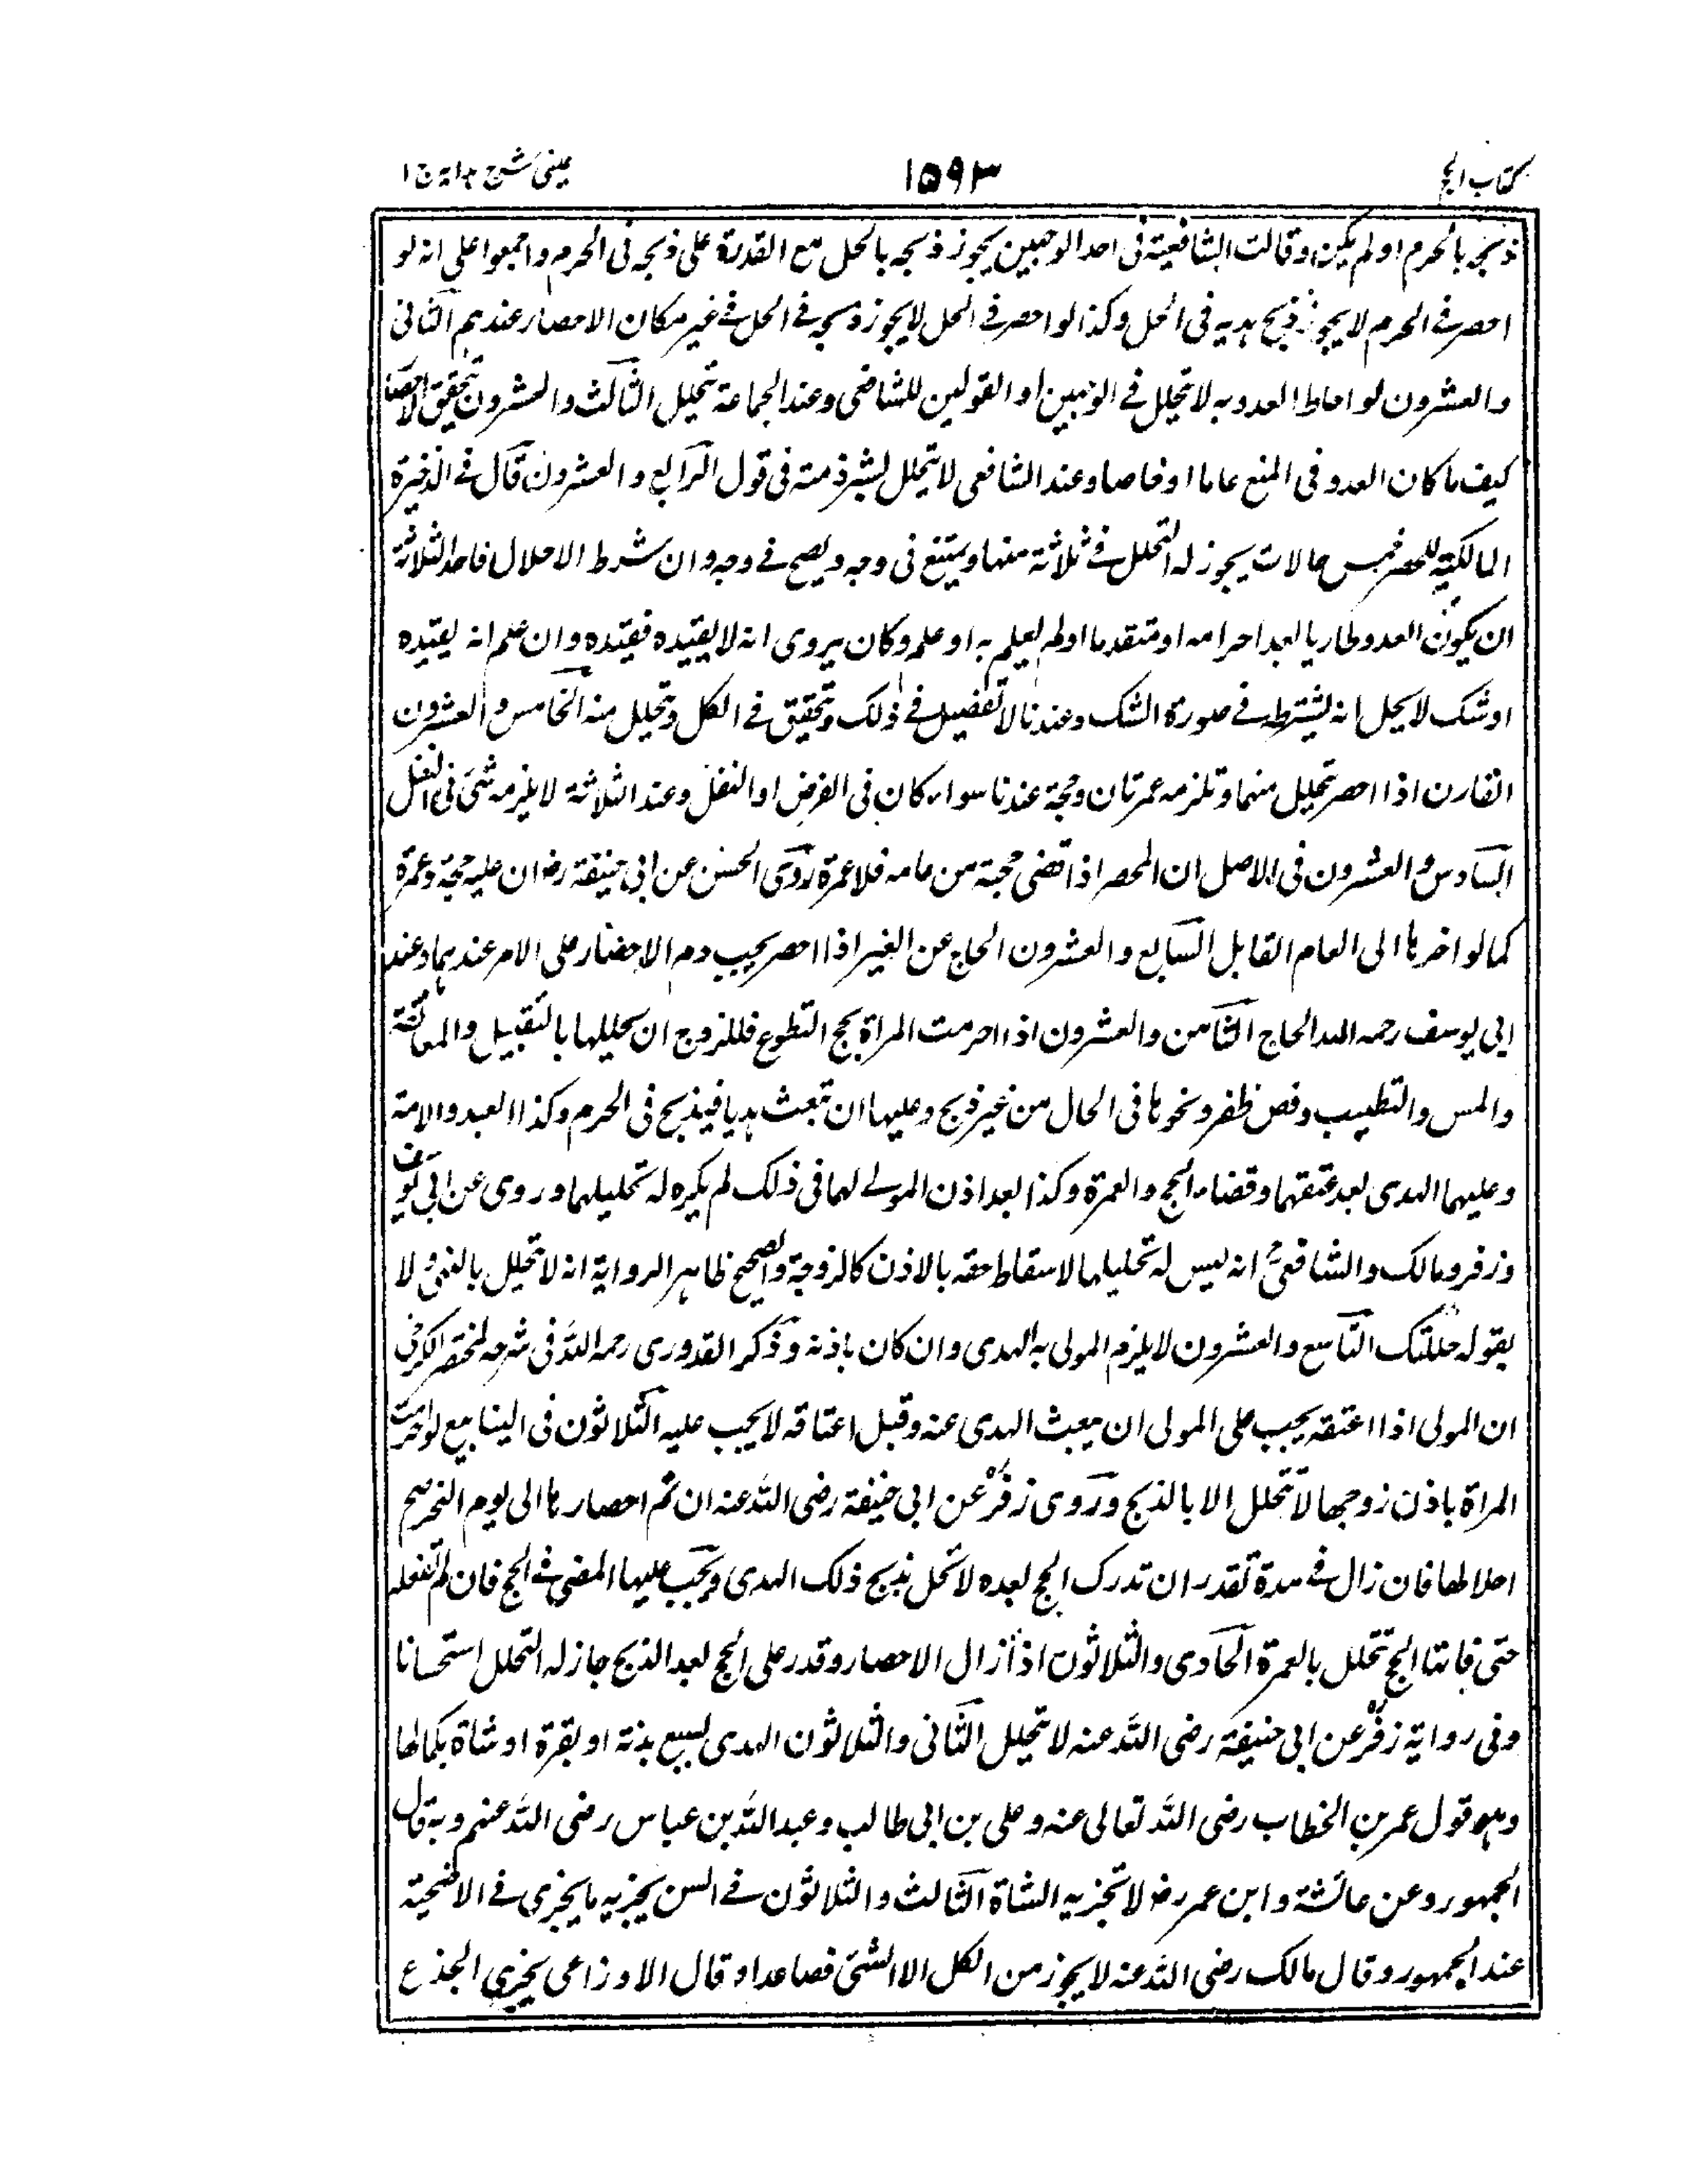 کتاب الحج
۱۵۹۳
عینی شرح ہدایہ ج ۱
ذبحہ بالحرم او لم یکن وقالت الشافعیۃ فی احد الوجہین یجوز ذبحہ بالحل مع القدرۃ علی ذبحہ فی الحرم واجمعوا علی انہ لو
احصر فے الحرم لا یجوز ذبح ہدیہ فی الحل وکذا لو احصر فے الحل لا یجوز ذبحہ فے الحل فے غیر مکان الاحصار عندہم الثانی
والعشرون لو احاط العدو بہ لا تحلل فے الوجہین او القولین للشافعی وعند الجماعۃ تحلیل الثالث والعشرون یتحقق الاحصا
کیف ما کان العدو فی المنع عاما او خاصا وعند الشافعی لا یتحلل لشرذمتہ فی قول الرابع والعشرون قال فے الذخیرۃ
المالکیۃ للمحصر خمس حالات یجوز لہ التحلل فے ثلاثۃ منہا ویمتنع فی وجہ ویصح فے وجہ وان شرط الاحلال فاحد الثلاثۃ
ان یکون العدو طاریا بعد احرامہ او متقدما او لم یعلم بہ او علم وکان یروی انہ لا یقیدہ فقیدہ وان علم انہ یقیدہ
او شک لا یحل انہ یشترط فے صورۃ الشک وعندنا لا تفصیل فے ذلک وتحقیق فے الکل وتحلیل منہ الخامس والعشرون
القارن اذا احصر تحلیل منہما وتلزمہ عمرتان وحجۃ عندنا سواء کان فی الفرض او النفل وعند الثلاثۃ لا یلزمہ شئ فی النفل
السادس والعشرون فی الاصل ان المحصر اذا قضی حجتہ من عامہ فلا عمرۃ روی الحسن عن ابی حنیفۃ رض ان علیہ حجۃ وعمرۃ
کما لو اخرہا الی العام القابل السابع والعشرون الحاج عن الغیر اذا احصر یجب دم الاحضار علی الامر عندہما وعند
ابی یوسف رحمہ اللہ الحاج الثامن والعشرون اذا احرمت المراۃ بحج التطوع فللزوج ان یحللہا بالتقبیل والمعانقۃ
والمس والتطییب وقص ظفر ونحوہا فی الحال من غیر ذبح وعلیہا ان تبعث ہدیا فیذبح فی الحرم وکذا العبد والامۃ
وعلیہما الہدی بعد عتقہما وقضاء الحج والعمرۃ وکذا بعد اذن المولے لہما فی ذلک لم یکرہ لہ تحلیلہما وروی عن ابی یوسف
وزفر ومالک والشافعیؒ انہ لیس لہ تحلیلہا لاسقاط حقہ بالاذن کالزوجۃ والصحیح ظاہر الروایۃ انہ لا تحلل بالنہی ولا
بقولہ حللتک التاسع والعشرون لا یلزم المولی بہ الہدی وان کان باذنہ وذکر القدوری رحمہ اللہ فی شرحہ لمختصر الکرخی
ان المولی اذا اعتقہ یجب علی المولی ان یبعث الہدی عنہ وقبل اعتاقہ لا یجب علیہ الثلاثون فی الینابیع لو احرمت
المراۃ باذن زوجہا لا تحلل الا بالذبح وروی زفرؒ عن ابی حنیفۃ رضی اللہ عنہ ان تم احصارہا الی یوم النحر صح
احلالہا فان زال فے مدۃ تقدر ان تدرک الحج بعدہ لا تحل بذبح ذلک الہدی ویجب علیہا المضی فے الحج فان لم تفعلہ
حتی فاتہا الحج تحلل بالعمرۃ الحادی والثلاثون اذا زال الاحصار وقدر علی الحج بعد الذبح جاز لہ التحلل استحسانا
وفی روایۃ زفرؒ عن ابی حنیفۃ رضی اللہ عنہ لا تحلیل الثانی والثلاثون الہدی لسبع بدنۃ او بقرۃ او شاۃ بکمالہا
وہو قول عمر بن الخطاب رضی اللہ تعالی عنہ وعلی بن ابی طالب وعبد اللہ بن عباس رضی اللہ عنہم وبہ قال
الجمہور وعن عائشۃ وابن عمر رض لا تجزیہ الشاۃ الثالث والثلاثون فے السن یجزیہ ما یجزی فے الاضحیۃ
عند الجمہور وقال مالک رضی اللہ عنہ لا یجوز من الکل الا الثنی فصاعدا وقال الاوزاعی یجزی الجذع